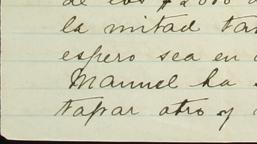 de los $2000
la mitad
espero sea en
Manuel ha
tapar otro y